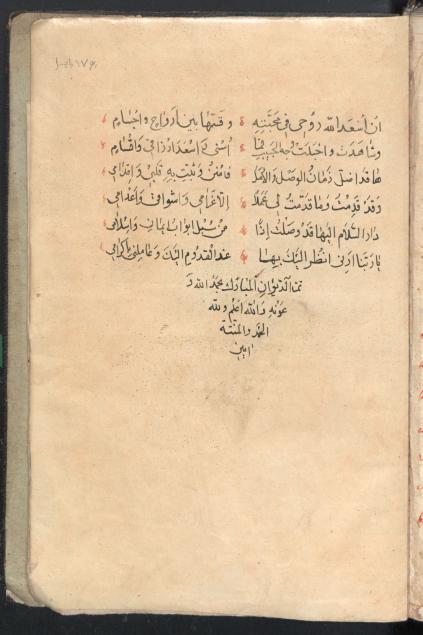 ان أسعد الله روحي في محبته وقتها بين أرواح وأجسام
وشاهدت واجتلت وجه الحبيب فما أسنى وأسعد أرزاقي وأقسام
ها قد أضل زمان الوصل يا أملي فامنن وثبت به قلبي وأقدامي
وقد قدمت وما قدمت لي عملا إلا غرامي وأشواقي وإقدامي
دار السلام إليها قد وصلت إذا من سبل أبواب إيماني وإسلامي
يا ربنا أرني أنظر إليك بها عند القدوم إليك وعاملني باكرامي
تمت الديوان المبارك بحمد الله و
عونه والله اعلم ولله
الحمد والمنة
امين